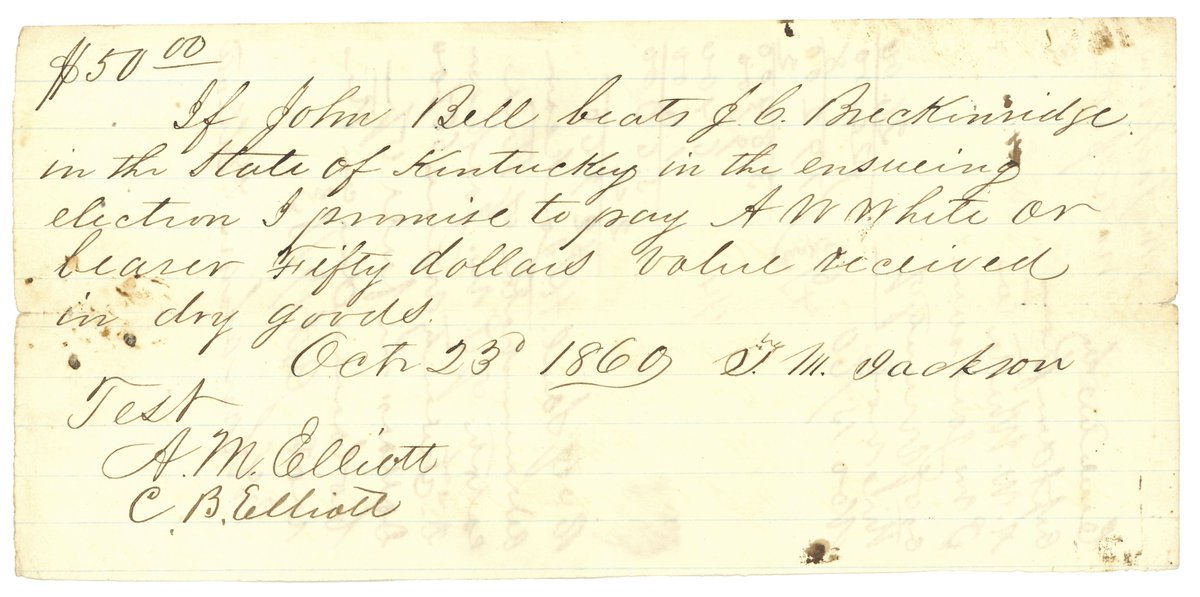 $50 00
If John Bell beats J. C. Breckinridge
in the State of Kentucky in the ensueing
election I promise to pay A W White or
bearer Fifty dollars value received
in dry goods.
Octr 23d 1860 T. M. Jackson
Test
A. M. Elliott
C. B. Elliott